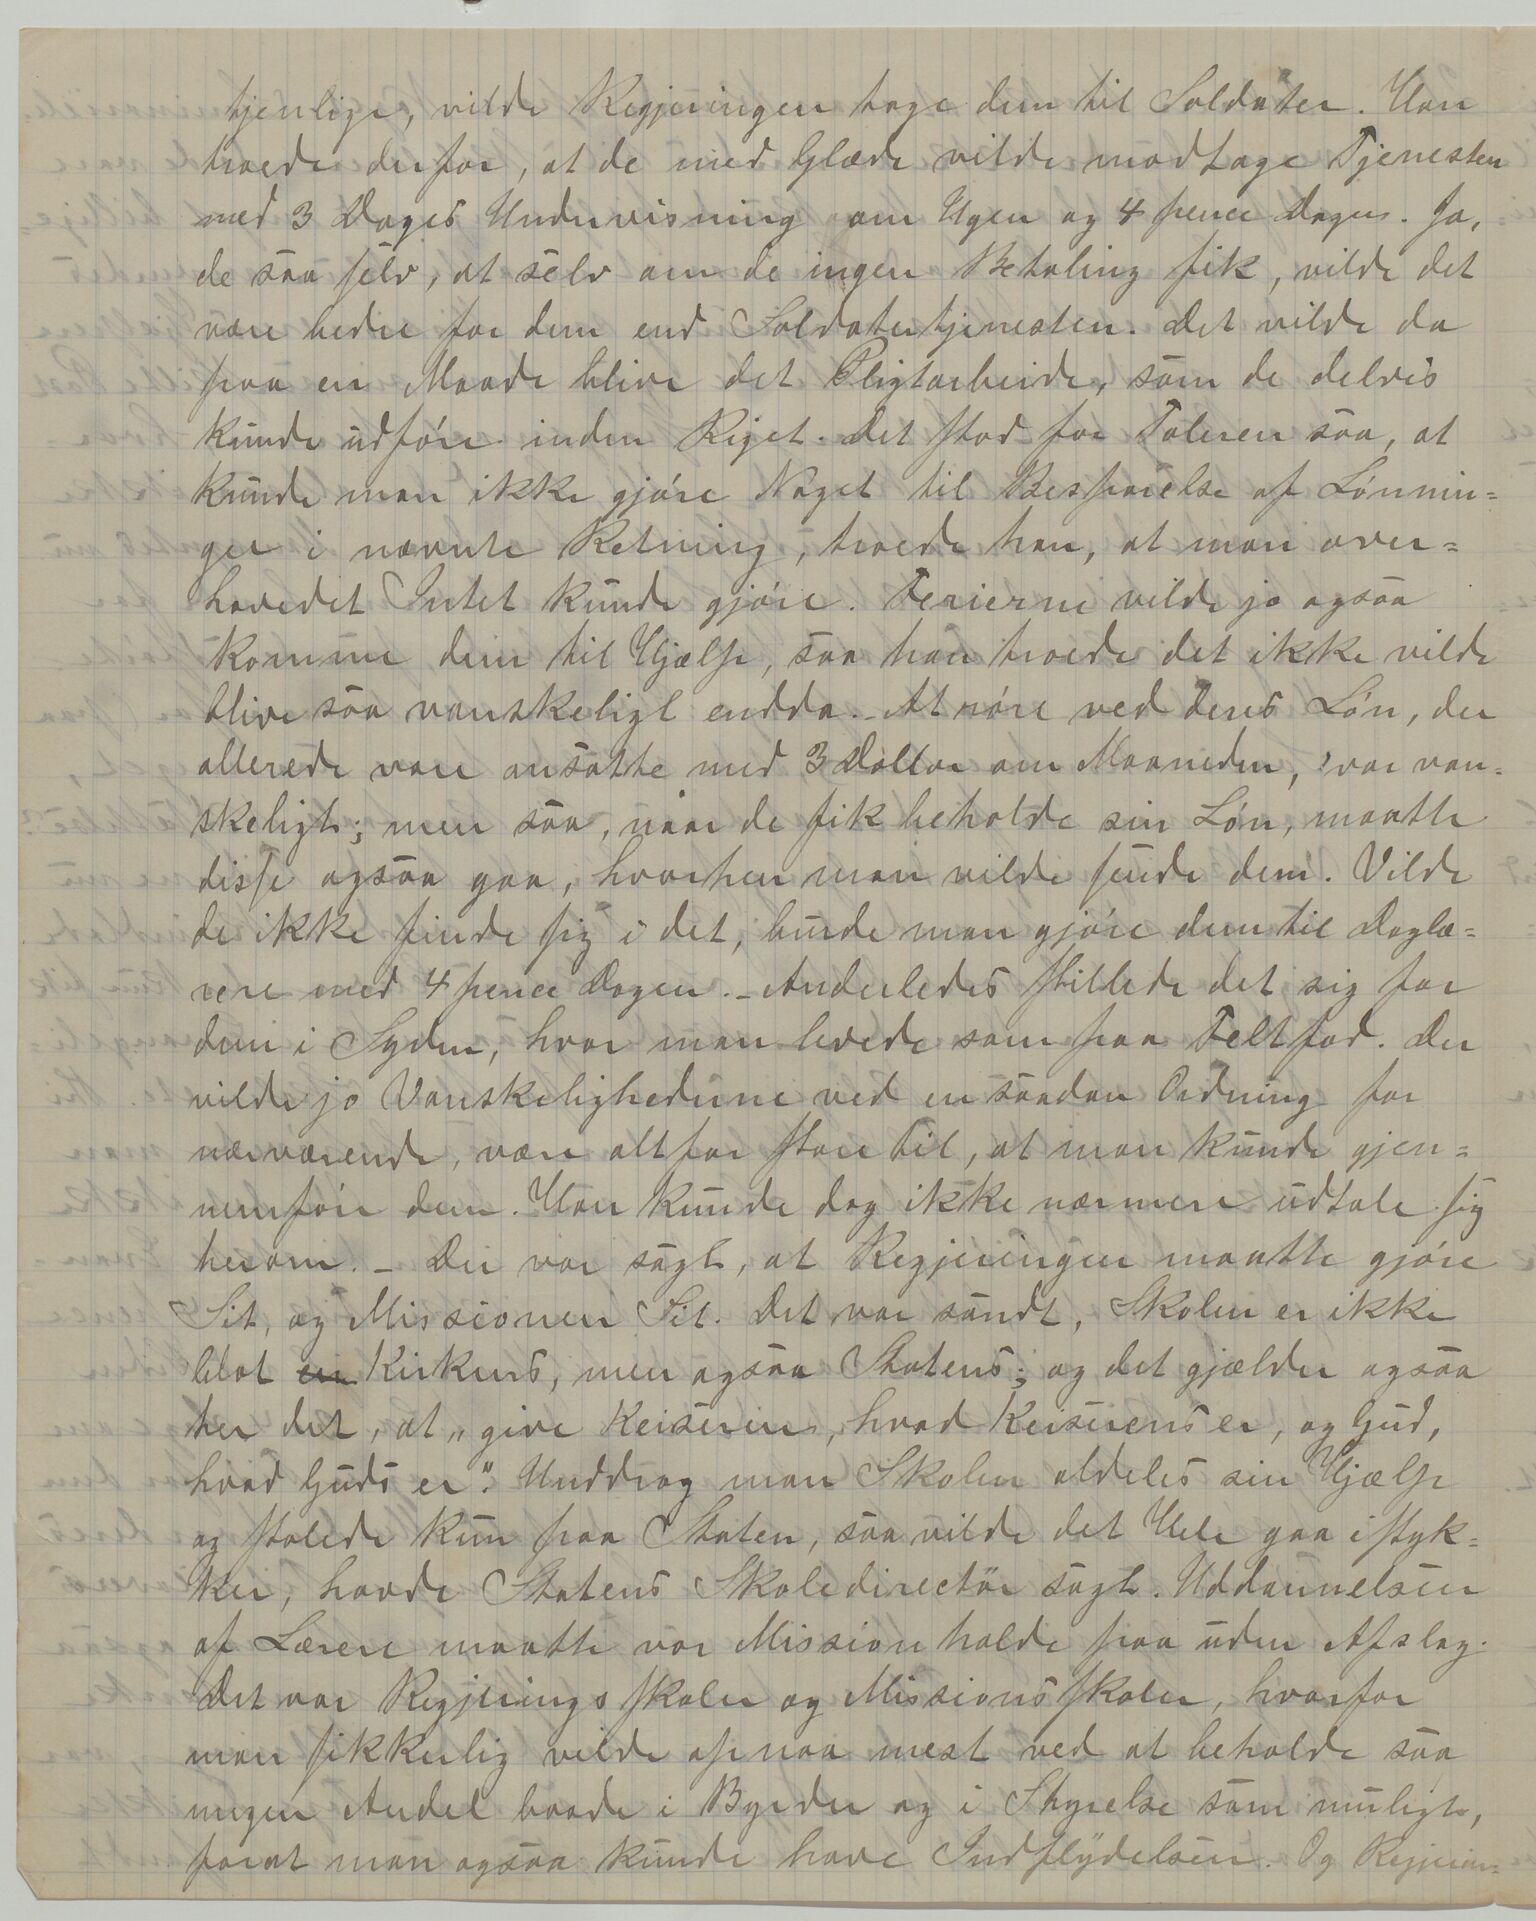 tjenlige, vilde Regjeringen tage dem til Soldater. Han
troede derfor, at de med Glæde vilde modtage Tjenesten
med 3 Dages Undervisning om Ugen og 4 pence Dagen. Ja,
de saa selv, at selv om de ingen Betaling fik, vilde det
være bedre for dem end Soldatertjenesten. Det vilde da
paa en Maade blive det Pligtarbeide, som de delvis
kunde udføre inden Riget. Det stod for Taleren saa, at
kunde man ikke gjøre Noget til Besparelse af Lønnin=
ger i nævnte Retning, troede han, at man over=
hovedet Intet kunde gjøre. Ferierne vilde jo ogsaa
komme dem til Hjælp, saa han troede det ikke vilde
blive saa vanskeligt endda. – At røre ved deres Løn, der
allerede vare ansatte med 3 Dollar om Maaneden, var van=
skeligt; men saa, naar de fik beholde sin Løn, maatte
disse ogsaa gaa, hvorhen man vilde sende dem. Vilde
de ikke finde sig i det, burde man gjøre dem til Daglæ=
rere med 4 pence Dagen. – Anderledes stillede det sig for
dem i Syden, hvor man levede som paa Feltfod. Der
vilde jo Vanskelighederne ved en saadan Ordning for
nærværende, være altfor store til, at man kunde gjen=
nemføre dem. Han kunde dog ikke nærmere udtale sig
herom. – Der var sagt, at Regjeringen maatte gjøre
Sit, og Missionen Sit. Det var sandt, Skolen er ikke
blot en Kirkens, men ogsaa Statens; og det gjælder ogsaa
her det, at „give Keiseren, hvad Keiserens er, og Gud,
hvad Guds er". Unddrog man Skolen aldeles sin Hjælp
og stolede kun paa Staten, saa vilde det Hele gaa istyk=
ker, havde Statens Skoledirectør sagt. Uddannelsen
af Lærere maatte vor Mission holde paa uden Afslag.
Det var Regjeringsskoler og Missionsskoler, hvorfor
man sikkerlig vilde opnaa mest ved at beholde saa
megen Andel baade i Byrder og i Styrelse som muligt,
forat man ogsaa kunde have Indflydelsen. Og Regjerin=